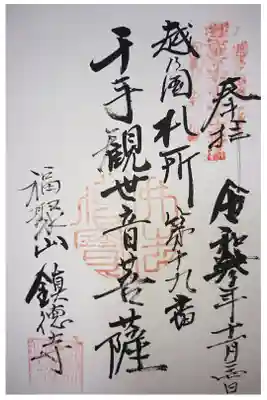 奉拝
令和参年十一月三日
越の国札所
第十九番
千手観世音菩薩
福聚山
鎮徳寺